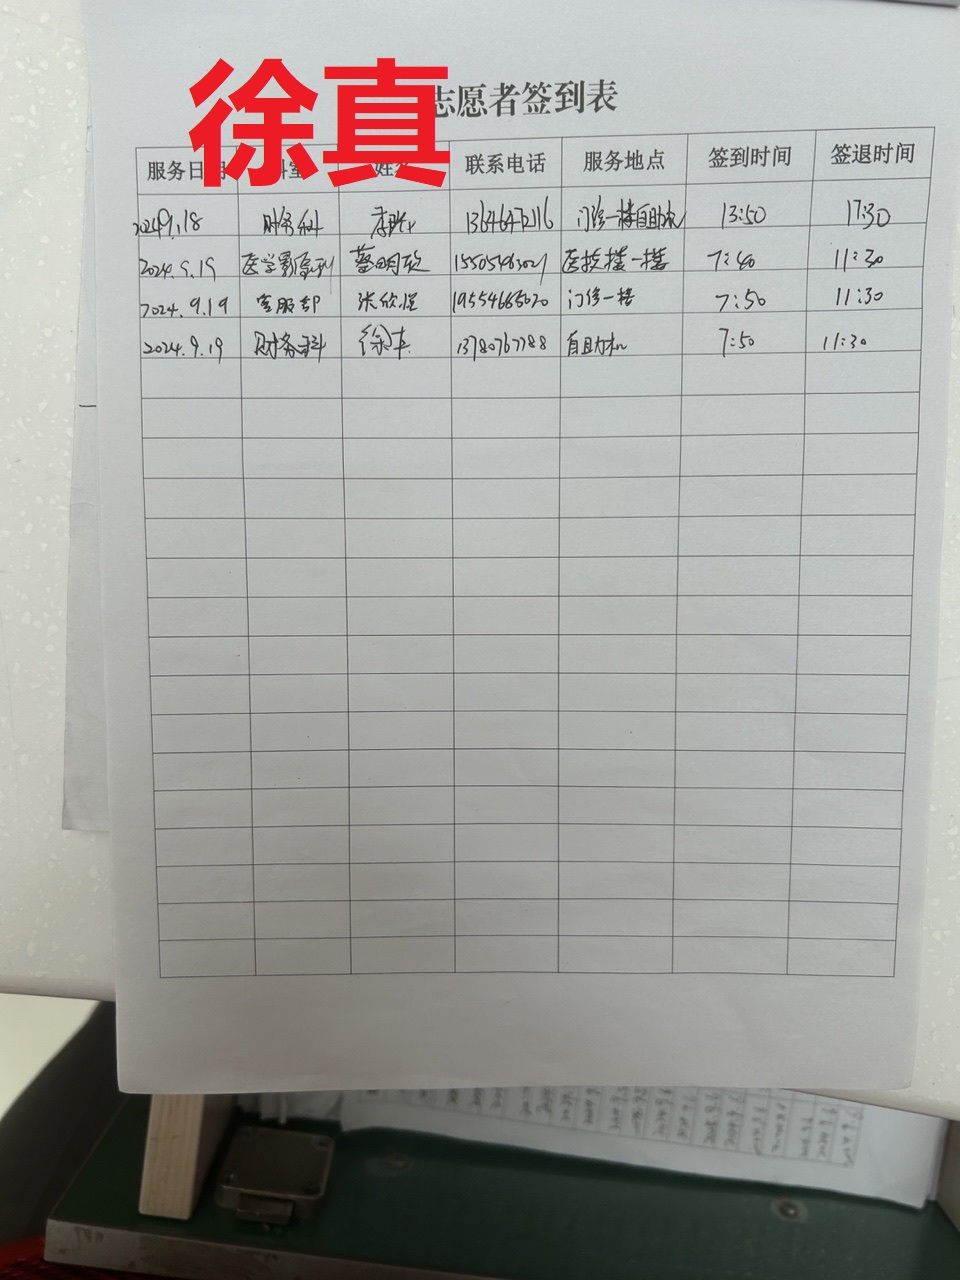 徐真
志愿者签到表
服务日期 科室 姓名 联系电话 服务地点 签到时间 签退时间
2024.9.18 财务科 门诊一楼自助机 13:50 17:30
2024.9.19 医学影像科 蔡明欣 医技楼一楼 7:40 11:30
2024.9.19 客服部 张欣悦 19554665020 门诊一楼 7:50 11:30
2024.9.19 财务科 徐真 13780767788 自助机 7:50 11:30